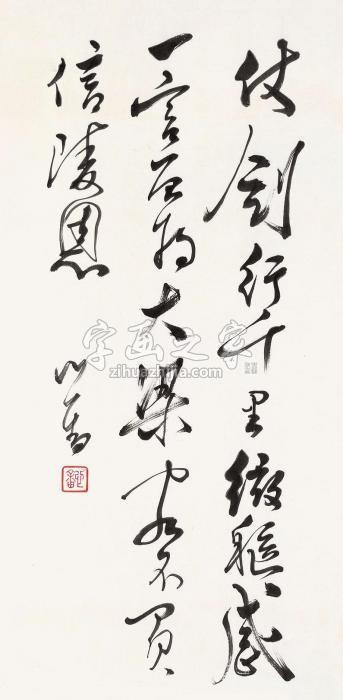 仗劍行千里微軀感
一言曾為大梁客不負
信陵恩
心畬
字画之家
zihuazhijia.com